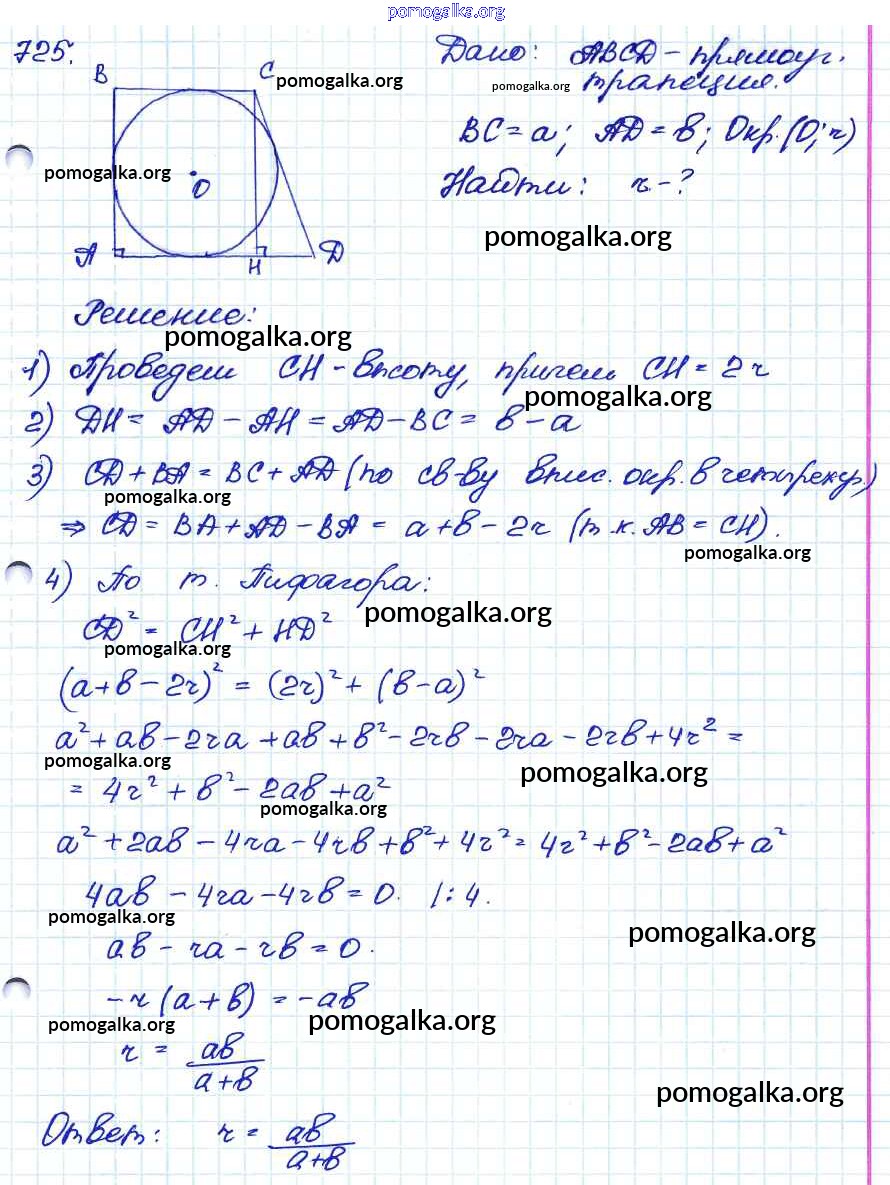 pomogalka.org
725.
Дано: ABCD – прямоуг.
трапеция.
BC = a; AD = b; Окр. (O; r)
Найти: r – ?
B
C
O
A
H
D
pomogalka.org
pomogalka.org
pomogalka.org
pomogalka.org
Решение:
pomogalka.org
1) Проведем CH – высоту, причем CH = 2r
pomogalka.org
2) DH = AD – AH = AD – BC = b – a
3) CD + BA = BC + AD (по св-ву впис. окр. в четырехуг.)
pomogalka.org
⇒ CD = BA + AD – BA = a + b – 2r (т.к. AB = CH).
pomogalka.org
4) По т. Пифагора:
pomogalka.org
CD² = CH² + HD²
pomogalka.org
(a + b – 2r)² = (2r)² + (b – a)²
a² + ab – 2ra + ab + b² – 2rb – 2ra – 2rb + 4r² =
pomogalka.org
pomogalka.org
= 4r² + b² – 2ab + a²
pomogalka.org
a² + 2ab – 4ra – 4rb + b² + 4r² = 4r² + b² – 2ab + a²
4ab – 4ra – 4rb = 0. /: 4.
pomogalka.org
pomogalka.org
ab – ra – rb = 0.
– r (a + b) = – ab
pomogalka.org
pomogalka.org
r = ab
a + b
pomogalka.org
Ответ: r = ab
a + b